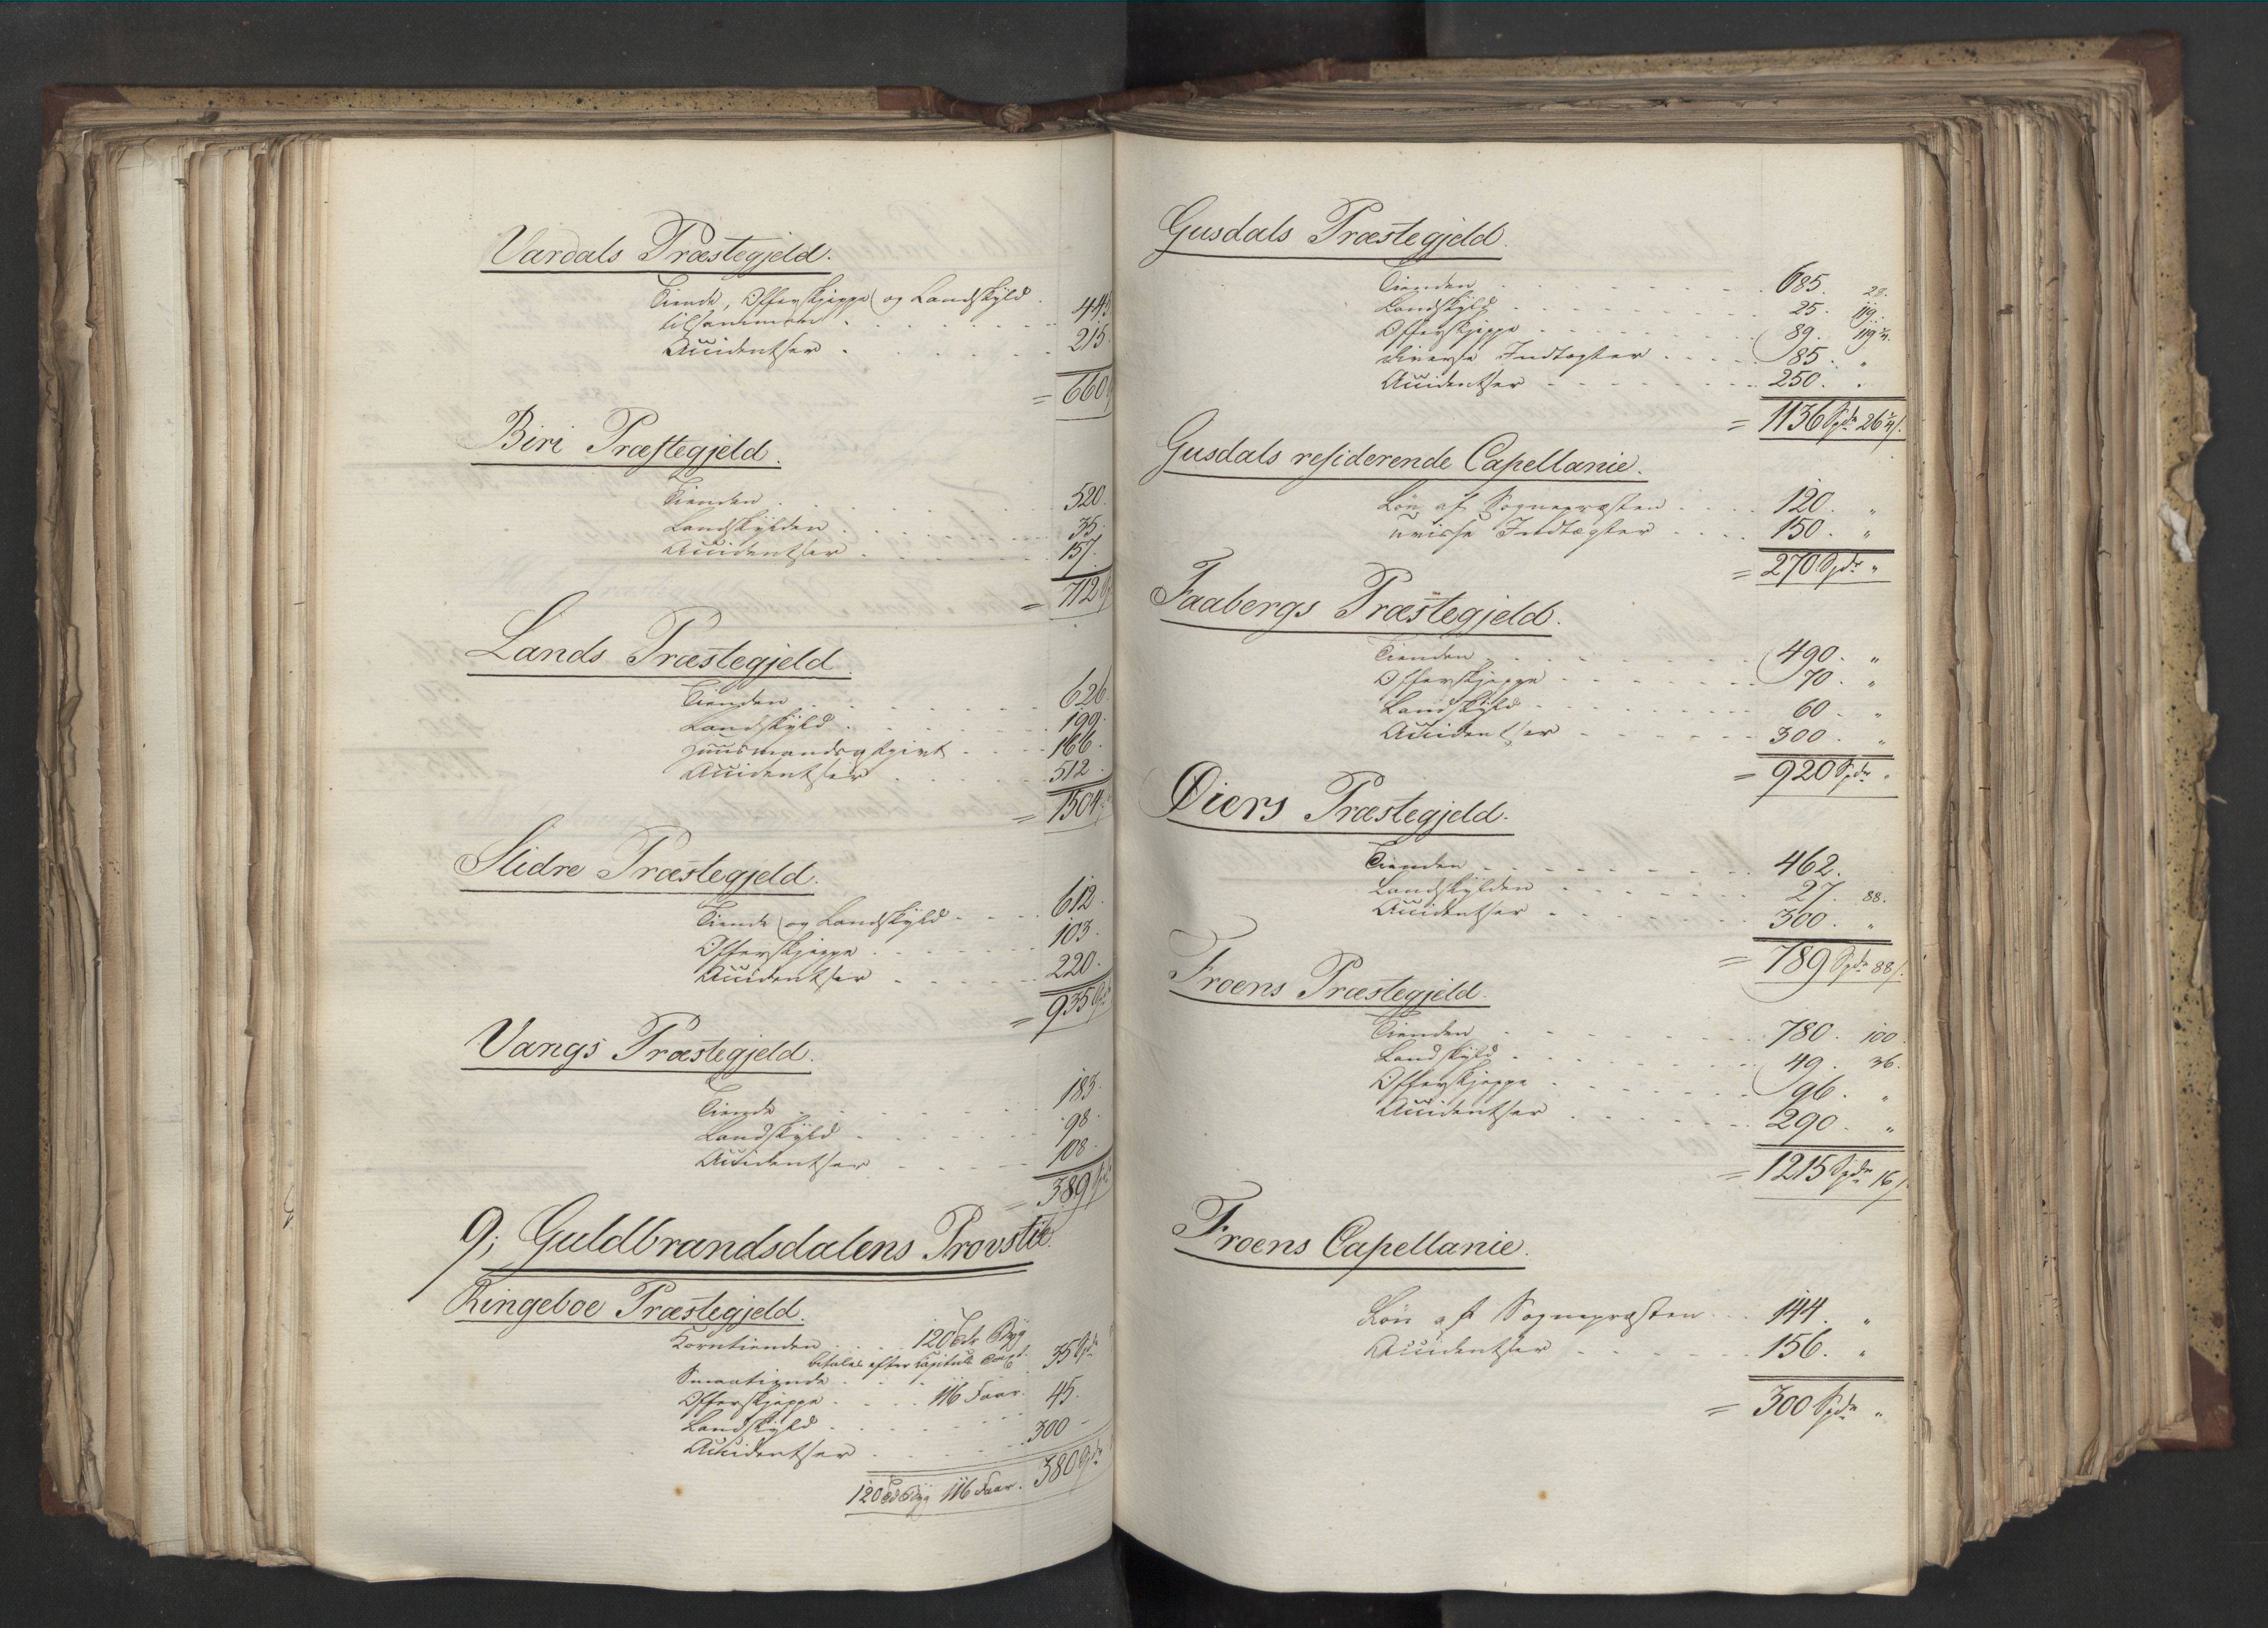 Vardals Præstegjeld.
Tiende, Offerskjeppe og Landskyld
tilsammen . 445
Accidentser . 215.
= 660
Biri Præstegjeld.
Tienden . 520.
Landskylden . 35.
Accidentser . 157.
= 712
Lands Præstegjeld.
Tienden . 626.
Landskyld . 199.
Huusmandsafgivt . 166.
Accidentser . 512.
= 1504
Slidre Præstegjeld.
Tiende og Landskyld . 612.
Offerskjeppe . 103.
Accidentser . 220.
= 935 Spd
Vangs Præstegjeld.
Tiende . 183.
Landskyld . 98.
Accidentser . 108.
= 389
9; Guldbrandsdalens Provstie.
Ringeboe Præstegjeld.
Korntienden . 120 Tdr Byg
betales efter Capituls Taxt.
Smaatiende . 35 Spdr
Offerskjeppe . 116 Faar.
Landskyld . 45.
Accidentser . 300
120 Td Byg 116 Faar. 380 Spdr
Gusdals Præstegjeld.
Tienden . 685. 28.
Landskyld . 25. 119.
Offerskjeppe . 89.
diverse Indtægter . 85. "
Accidentser . 250. "
= 1136 Spdr
Gusdals residerende Capellanie.
Løn af Sognepræsten . 120. "
uvisse Indtægter . 150. "
= 270 Spdr "
Faabergs Præstegjeld.
Tienden . 490. "
Offerskjeppe . 70. "
Landskyld . 60. "
Accidentser . 300. "
= 920 Spdr "
Øiers Præstegjeld.
Tienden . 462.
Landskylden . 27. 88.
Accidentser . 300. "
= 789 Spdr 88 /
Froens Præstegjeld.
Tienden . 780. 100.
Landskyld . 49. 36.
Offerskjeppe . 96. "
Accidentser . 290. "
= 1215 Spdr 16 /
Froens Capellanie.
Løn af Sognepræsten . 144. "
Accidentser . 156. "
= 300 Spdr "